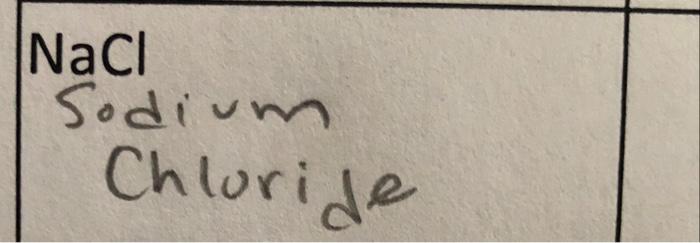 NaCl
Sodium
Chloride